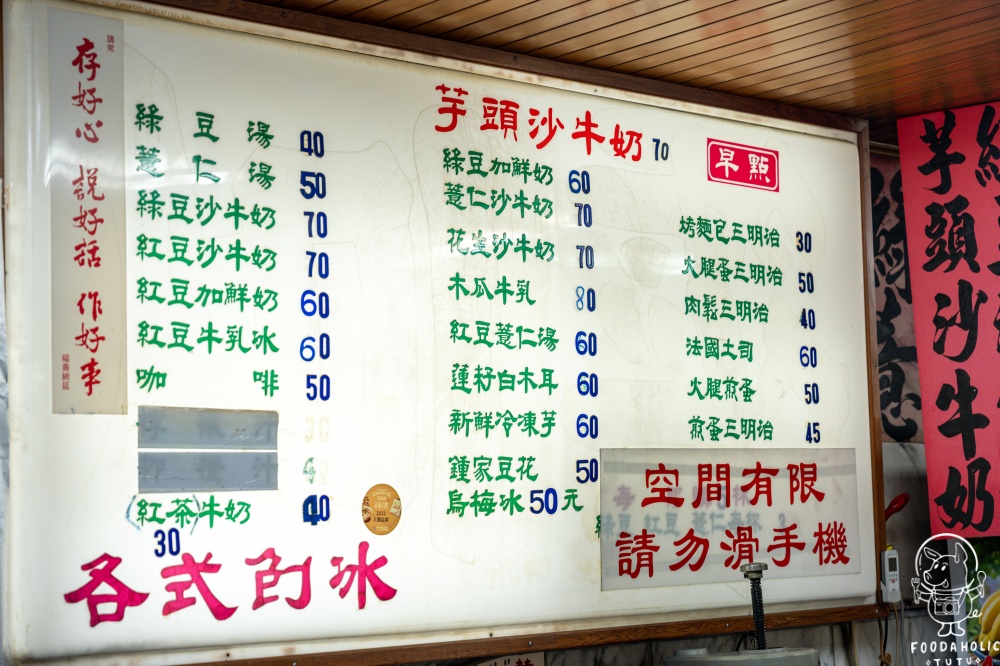 請常
存好心 說好話 作好事
福壽綿延
綠豆湯 40
薏仁湯 50
綠豆沙牛奶 70
紅豆沙牛奶 70
紅豆加鮮奶 60
紅豆牛乳冰 60
咖啡 50
(紅茶)牛奶 40
30
各式的冰
芋頭沙牛奶 70
綠豆加鮮奶 60
薏仁沙牛奶 70
花生沙牛奶 70
木瓜牛乳 80
紅豆薏仁湯 60
蓮籽白木耳 60
新鮮冷凍芋 60
鍾家豆花 50
烏梅冰 50元
早點
烤麵包三明治 30
火腿蛋三明治 50
肉鬆三明治 40
法國土司 60
火腿煎蛋 50
煎蛋三明治 45
空間有限
請勿滑手機
芋頭沙牛奶
FOODAHOLIC
TUTU